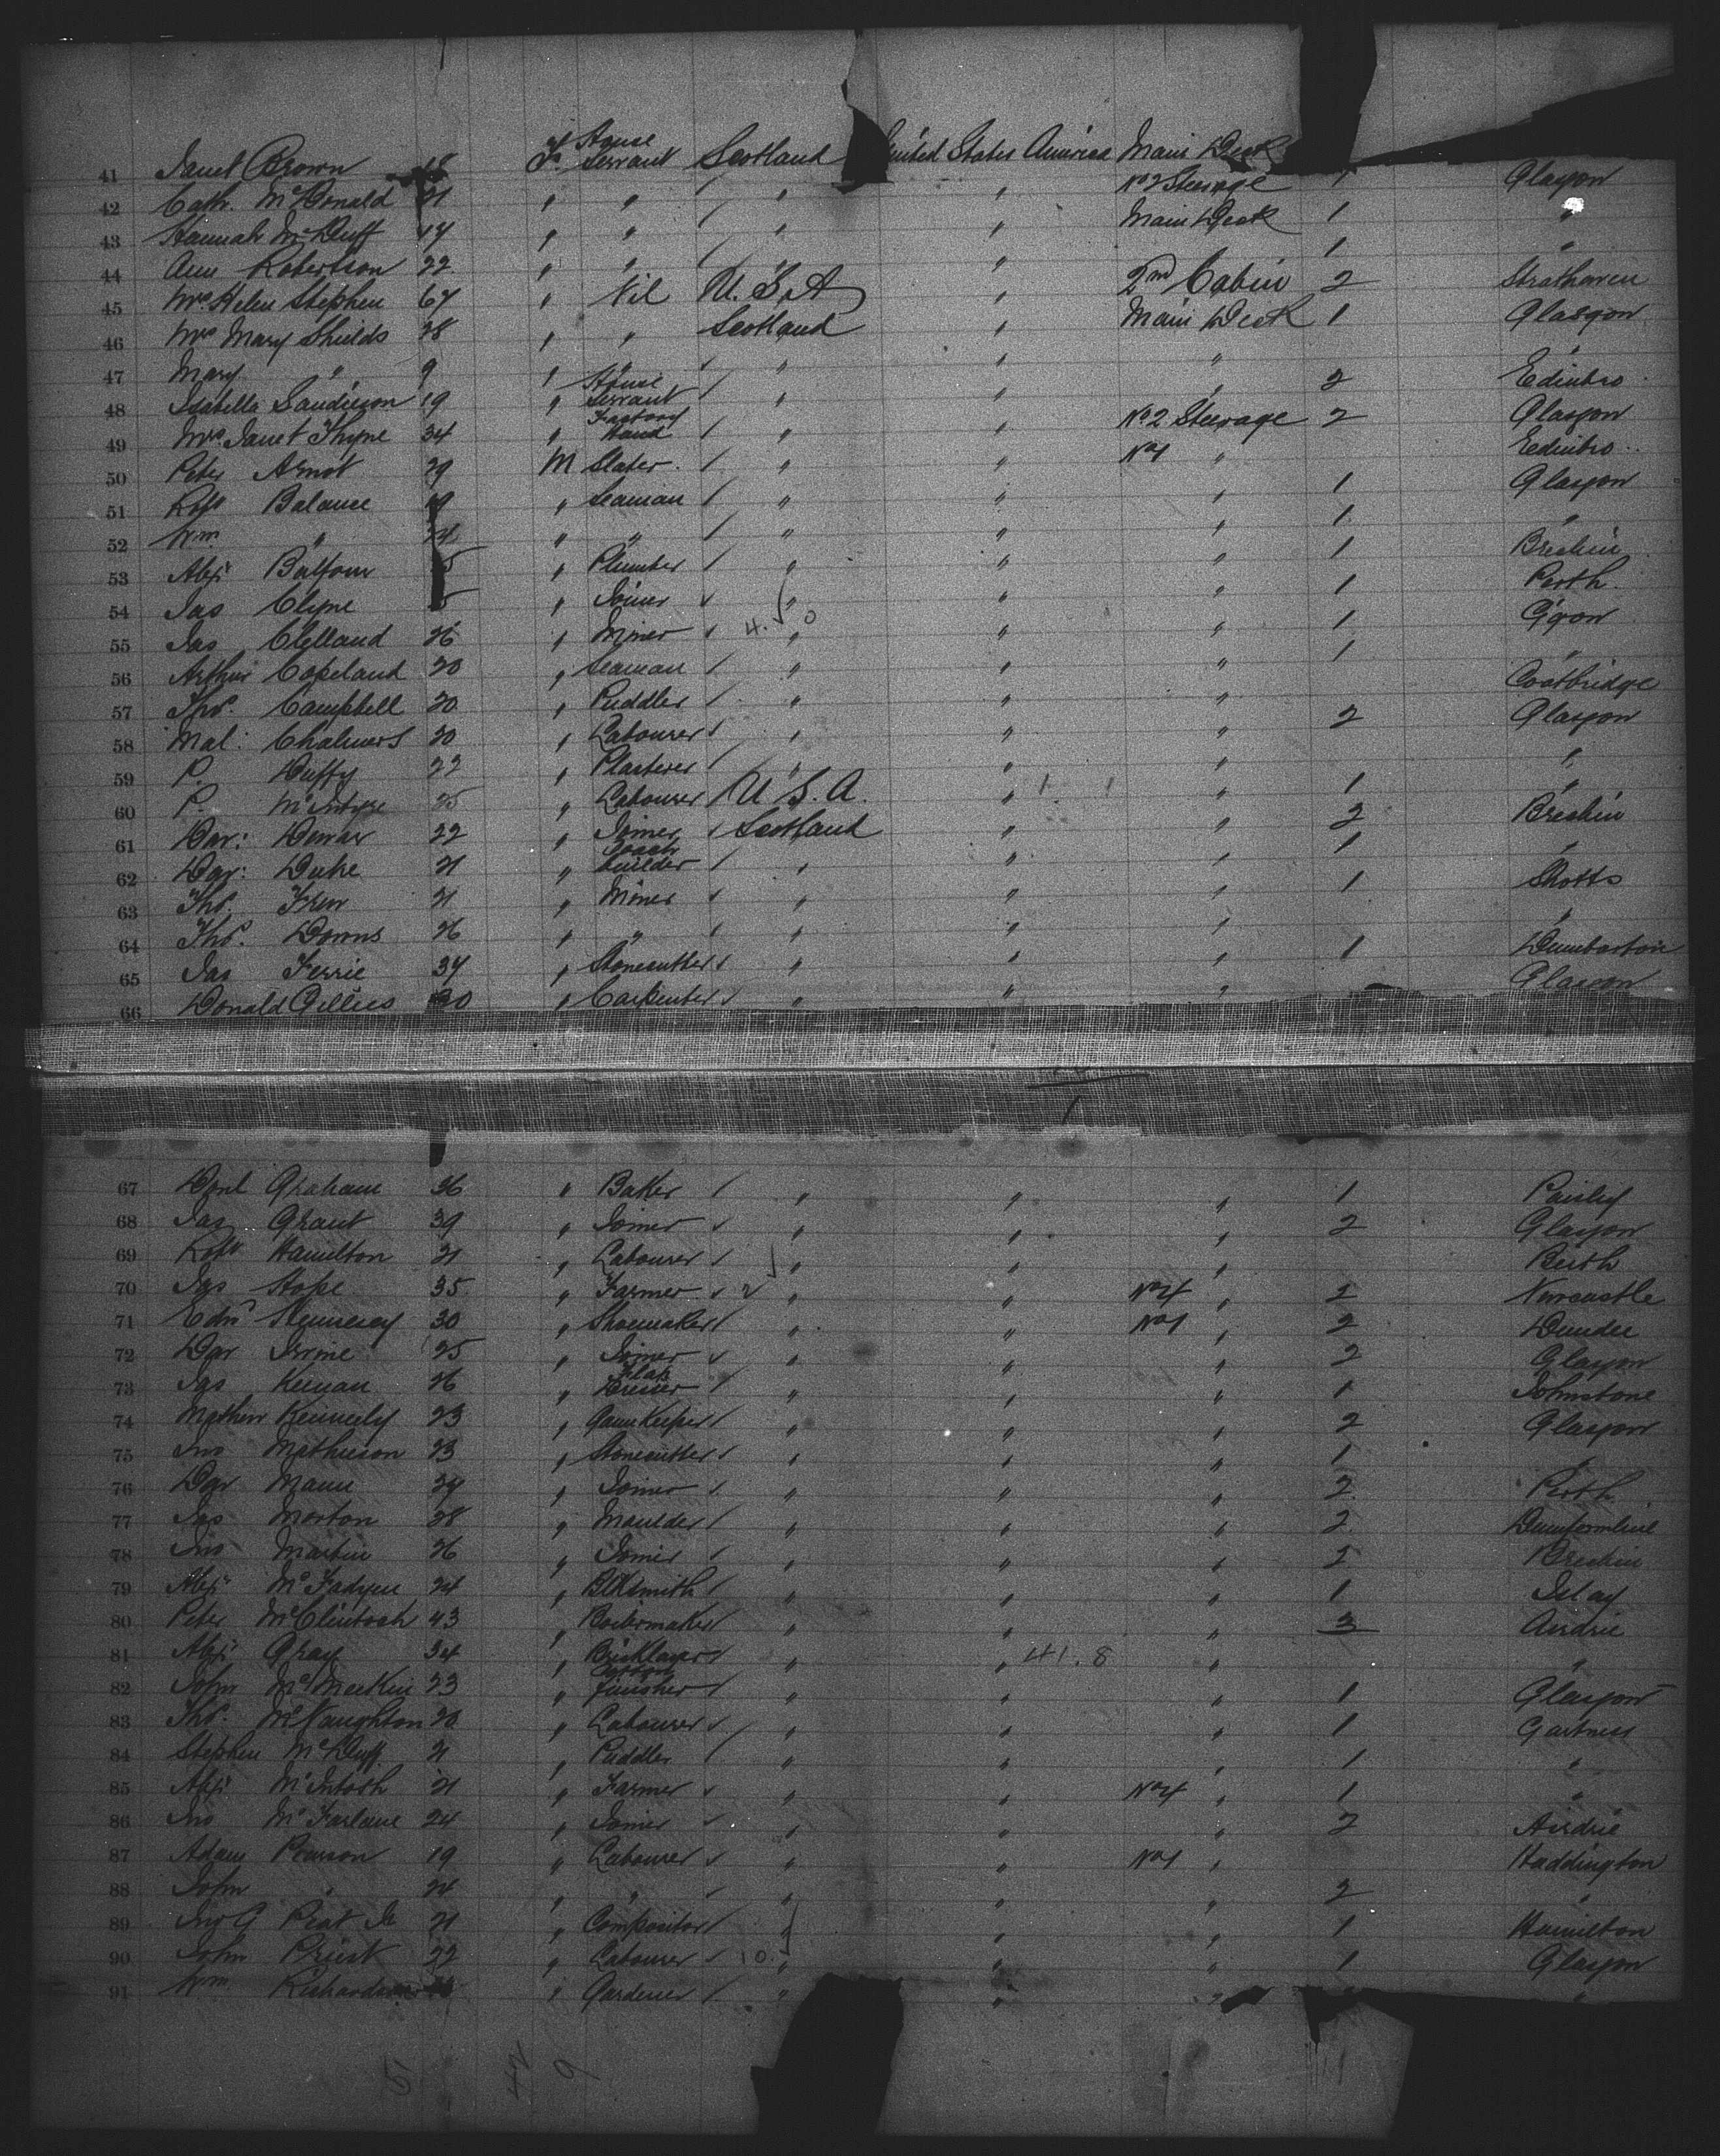 41 Janet Brown 18 F. House Servant Scotland United States America Main Deck Glasgow
42 Cath. McDonald 21 " " " " No 2 Steerage 1 "
43 Hannah McDuff 17 " " " " Main Deck 1 "
44 Ann Robertson 22 " " " " 1
45 Mrs Helen Stephen 67 " Nil U.S.A " 2nd Cabin 2 Strathaven
46 Mrs Mary Shields 28 " " Scotland " Main Deck 1 Glasgow
47 Mary " 9 " " " " " "
48 Isabella Sandieson 19 " House Servant " " " 2 Edinbro
49 Mrs. Janet Thyne 34 " Factory Hand " " No 2 Steerage 2 Glasgow
50 Peter Arnot 29 M Slater " " No 1 " Edinbro
51 Robt Balance 19 " Seaman " " " 1 Glasgow
52 Wm " 24 " " " " " 1 "
53 Alexr Balfour " Plumber " " " 1 Brechin
54 Jas Clyne " Joiner " " " 1 Perth
55 Jas Clelland 26 " Miner 4. " 0 " " 1 G'gow
56 Arthur Copeland 20 " Seaman " " " 1 "
57 Thos. Campbell 20 " Puddler " " " Coatbridge
58 Mal: Chalmers 20 " Labourer " " " 2 Glasgow
59 P. Duffy 22 " Plasterer " " " "
60 P. McIntyre 25 " Labourer U.S.A. " " 1 "
61 Dav: Dewar 22 " Joiner Scotland " " 2 Brechin
62 Dav: Duke 21 " Coach builder " " " 1 "
63 Thos. Frew 21 " Miner " " " 1 Shotts
64 Thos. Downs 26 " " " " " "
65 Jas Ferrie 37 " Stonecutter " " " 1 Dumbarton
66 Donald Gillies 20 " Carpenter " " " Glasgow
67 Donl Graham 36 " Baker " " " 1 Paisley
68 Jas Grant 39 " Joiner " " " 2 Glasgow
69 Robt Hamilton 21 " Labourer " " " Beith
70 Jas Hope 35 " Farmer 2 " " No 4 " 2 Newcastle
71 Edwd Hennessy 30 " Shoemaker " " No 1 " 2 Dundee
72 Dav Irvine 25 " Joiner " " " 2 Glasgow
73 Jas Keenan 26 " Flax Dresser " " " 1 Johnstone
74 Mathew Kennedy 23 " Gamekeeper " " " 2 Glasgow
75 Jno Mathieson 23 " Stonecutter " " " 1 "
76 Dav Mann 29 " Joiner " " " 2 Perth
77 Jas Morton 28 " Moulder " " " 2 Dumfermline
78 Jno Martin 26 " Joiner " " " 2 Brechin
79 Alexr McFadyen 24 " Blksmith " " " 1 Islay
80 Peter McClintoch 43 " Boilermaker " " " 3 Airdrie
81 Alexr Gray 34 " Bricklayer " " 41.8 " "
82 John McMeekin 23 " finisher " " " 1 Glasgow
83 Thos. McNaughton 20 " Labourer " " " 1 Gartness
84 Stephen McDuff 21 " Puddler " " " 1 "
85 Alexr McIntosh 21 " Farmer " " No 4 " 1 "
86 Jno McFarlane 24 " Joiner " " " 2 Airdrie
87 Adam Pearson 19 " Labourer " " No 1 " Haddington
88 John " 24 " " " " " 2 "
89 Jno G Peat Jr 21 " Compositor " " " 1 Hamilton
90 John Priest 22 " Labourer 10. " " " 1 Glasgow
91 Wm Richardson " Gardener " " " "
5 42 9